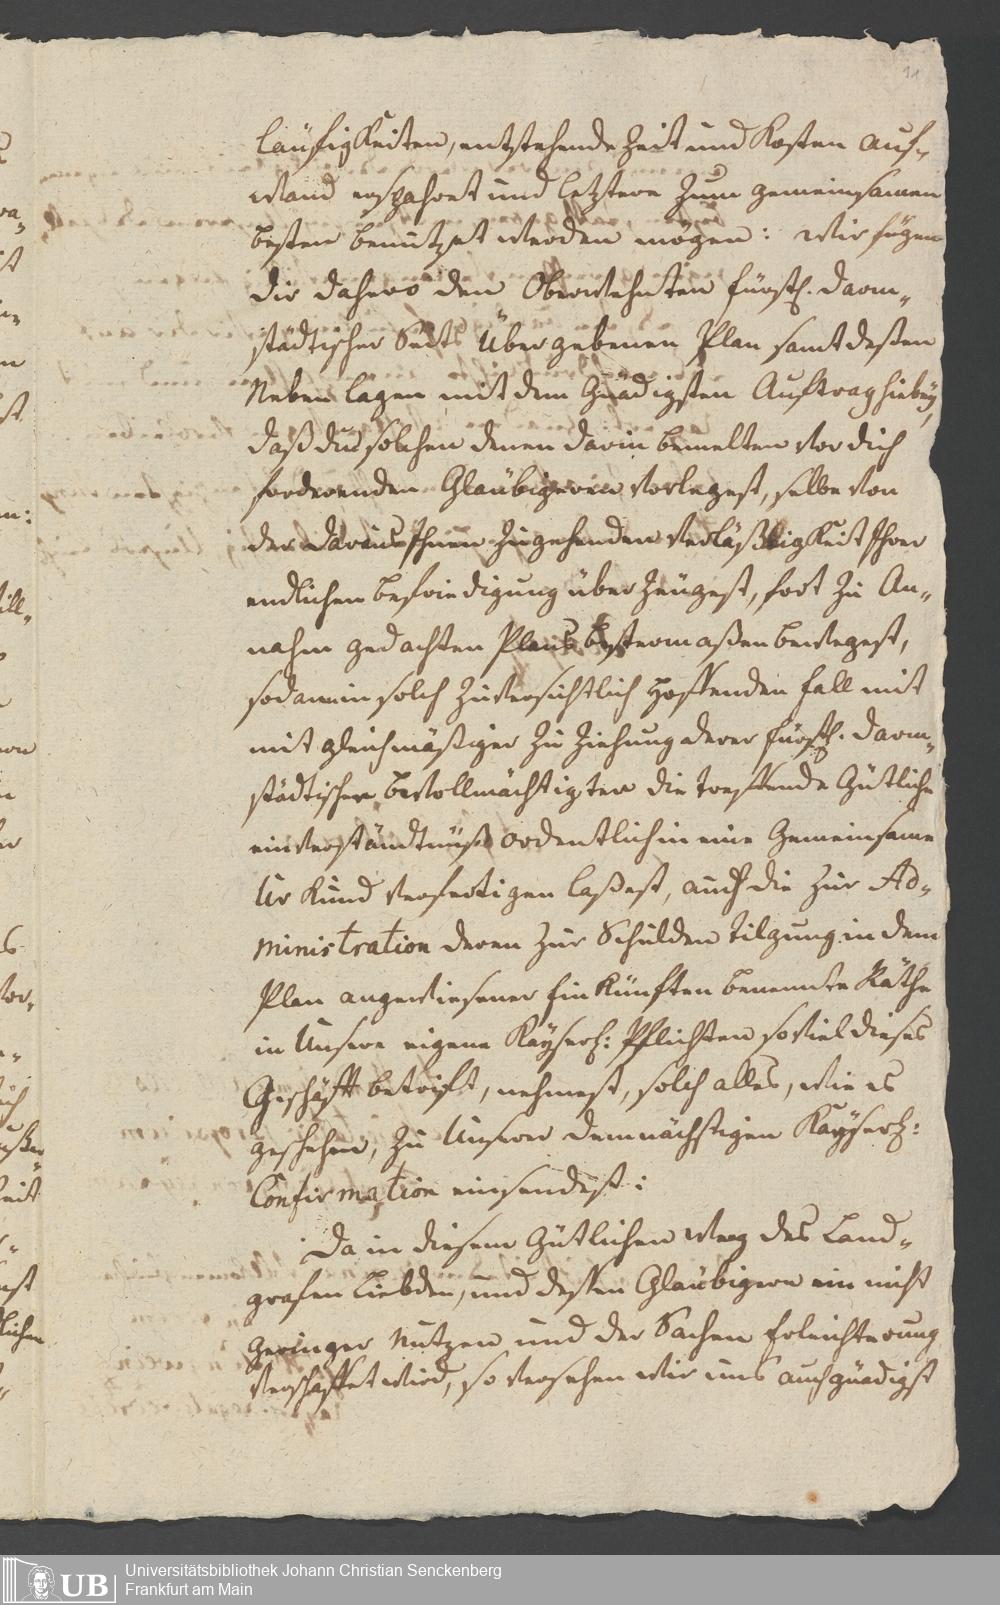 11
läufigkeiten, entstehende Zeit und Kosten Auf-
wand ersparet und letztere zum gemeinsamen
besten benützet werden mögen: wir fügen
dir dahero den Oberwehnten fürstl. Darm-
städtischer Seits übergebenen Plan samt deßen
Neben lagen mit dem Gnädigsten Auftrag hiebey,
daß du solchen denen darin bemelten vor dich
fordrenden Gläubigeren vorlegest, selbe von
der daraus Ihnen zugehenden verläßigkeit Ihrer
endlichen befriedigung überzeugest, fort zu An-
nahm gedachten Plans bestermaßen bewegest,
sodann in solch zuversichtlich hoffenden fall mit
mit gleichmäßiger Zu Ziehung derer fürstl. Darm-
städtischer bevollmächtigter die treffende Gütliche
einverständtnüß ordentlich in eine Gemeinsame
Urkund verfertigen laßest, auch die zur Ad-
ministration deren zur Schulden tilgung in dem
Plan angewiesener Einkünften benennte Räthe
in Unsere eigene Kayserl: Pflichten soviel dieses
Geschäfft betrifft, nehmest, solch alles, wie es
geschehen, zu Unserer demnächstigen Kayserl:
Confirmation einsendest:
Da in diesem Gütlichen weeg des Land-
grafen Liebden, und deßen Gläubigern ein nicht
geringer Nutzen und der Sachen Erleichterung
verschaffet wird, so versehen wir uns auch gnädigst
Universitätsbibliothek Johann Christian Senckenberg
Frankfurt am Main
UB